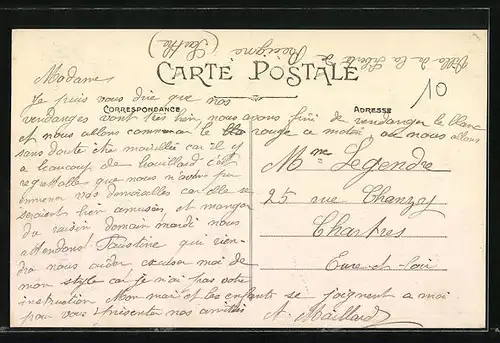 Ville de la Liberté de
Précigné (Sarthe)
CARTE POSTALE
CORRESPONDANCE
ADRESSE
10
Madame
Je puis vous dire que nos
vendanges vont très bien nous avons fini de vendanger le blanc
et nous allons commencer le rouge ce matin, ou nous allons
sans doute être mouillés car il y
a beaucoup de brouillard c'est
regrettable que nous n'avons pu
emmener vos demoiselles car elle se
seraient bien amusées et manger
du raisin demain mardi nous
attendons Faustine qui vien
dra nous aider excuser moi de
mon style car je n'ai pas votre
instruction Mon mari et les enfants se joignent a moi
pour vous présenter nos amitiés
A. Maillard
Mme Legendre
25 rue Chanzy
Chartres
Eure-et-Loir